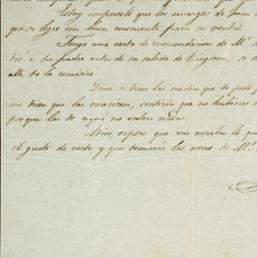 Estoy impuesto que los encargos de Juan
que se logre un buen momento para su venta
Tengo una carta de recomendacion de Mr.
dió a su padre antes de su salida de Kingston, si
alli, te la remitire
Dime si traes las medias que te pedí
me dicen que las ocasion, sentiria que no hubieses
porque las de aqui no valen nada
Adios, espero que me escribas lo que
el gusto de verte y que tomarás las uvas de Mr.